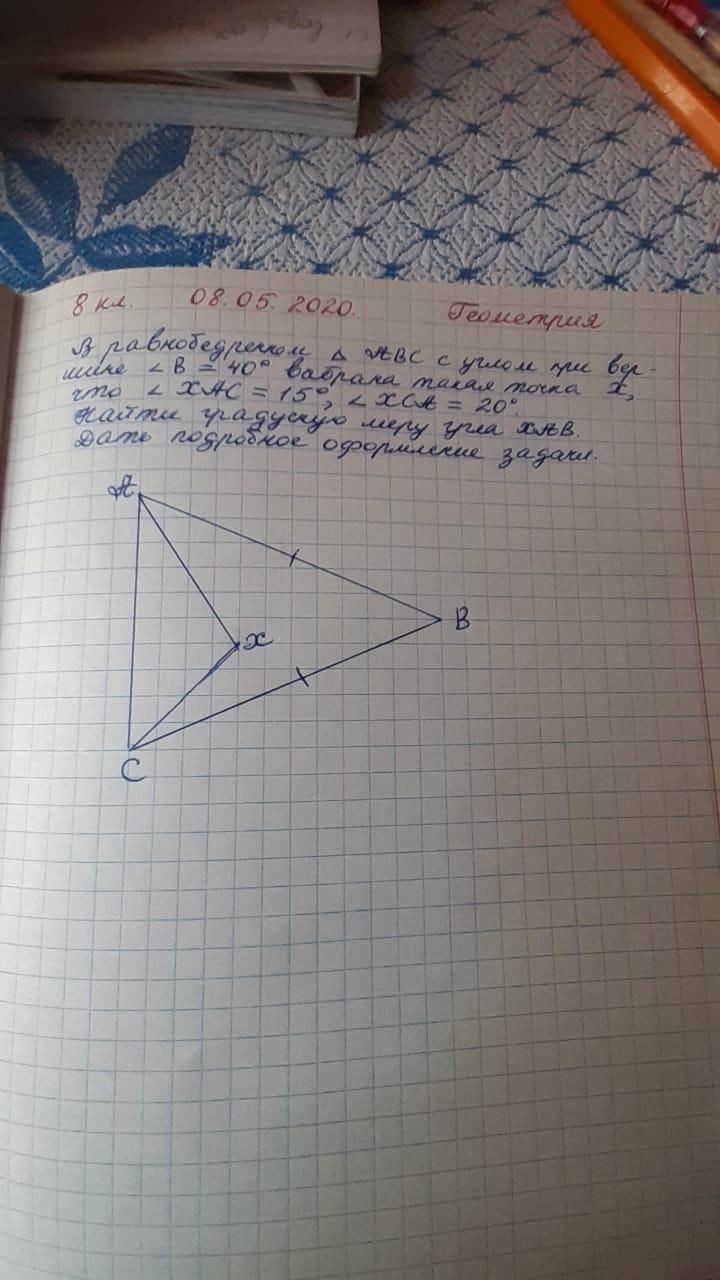 8 кл. 08.05.2020. Геометрия
В равнобедренном △ ABC с углом при вер-
шине ∠B = 40° выбрана такая точка X,
что ∠XAC = 15°, ∠XCA = 20°.
Найти градусную меру угла XAB.
Дать подробное оформление задачи.
A
X
B
C